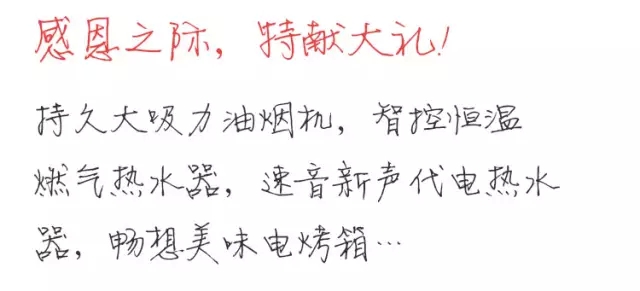 感恩之际，特献大礼！
持久大吸力油烟机，智控恒温
燃气热水器，速音新声代电热水
器，畅想美味电烤箱…